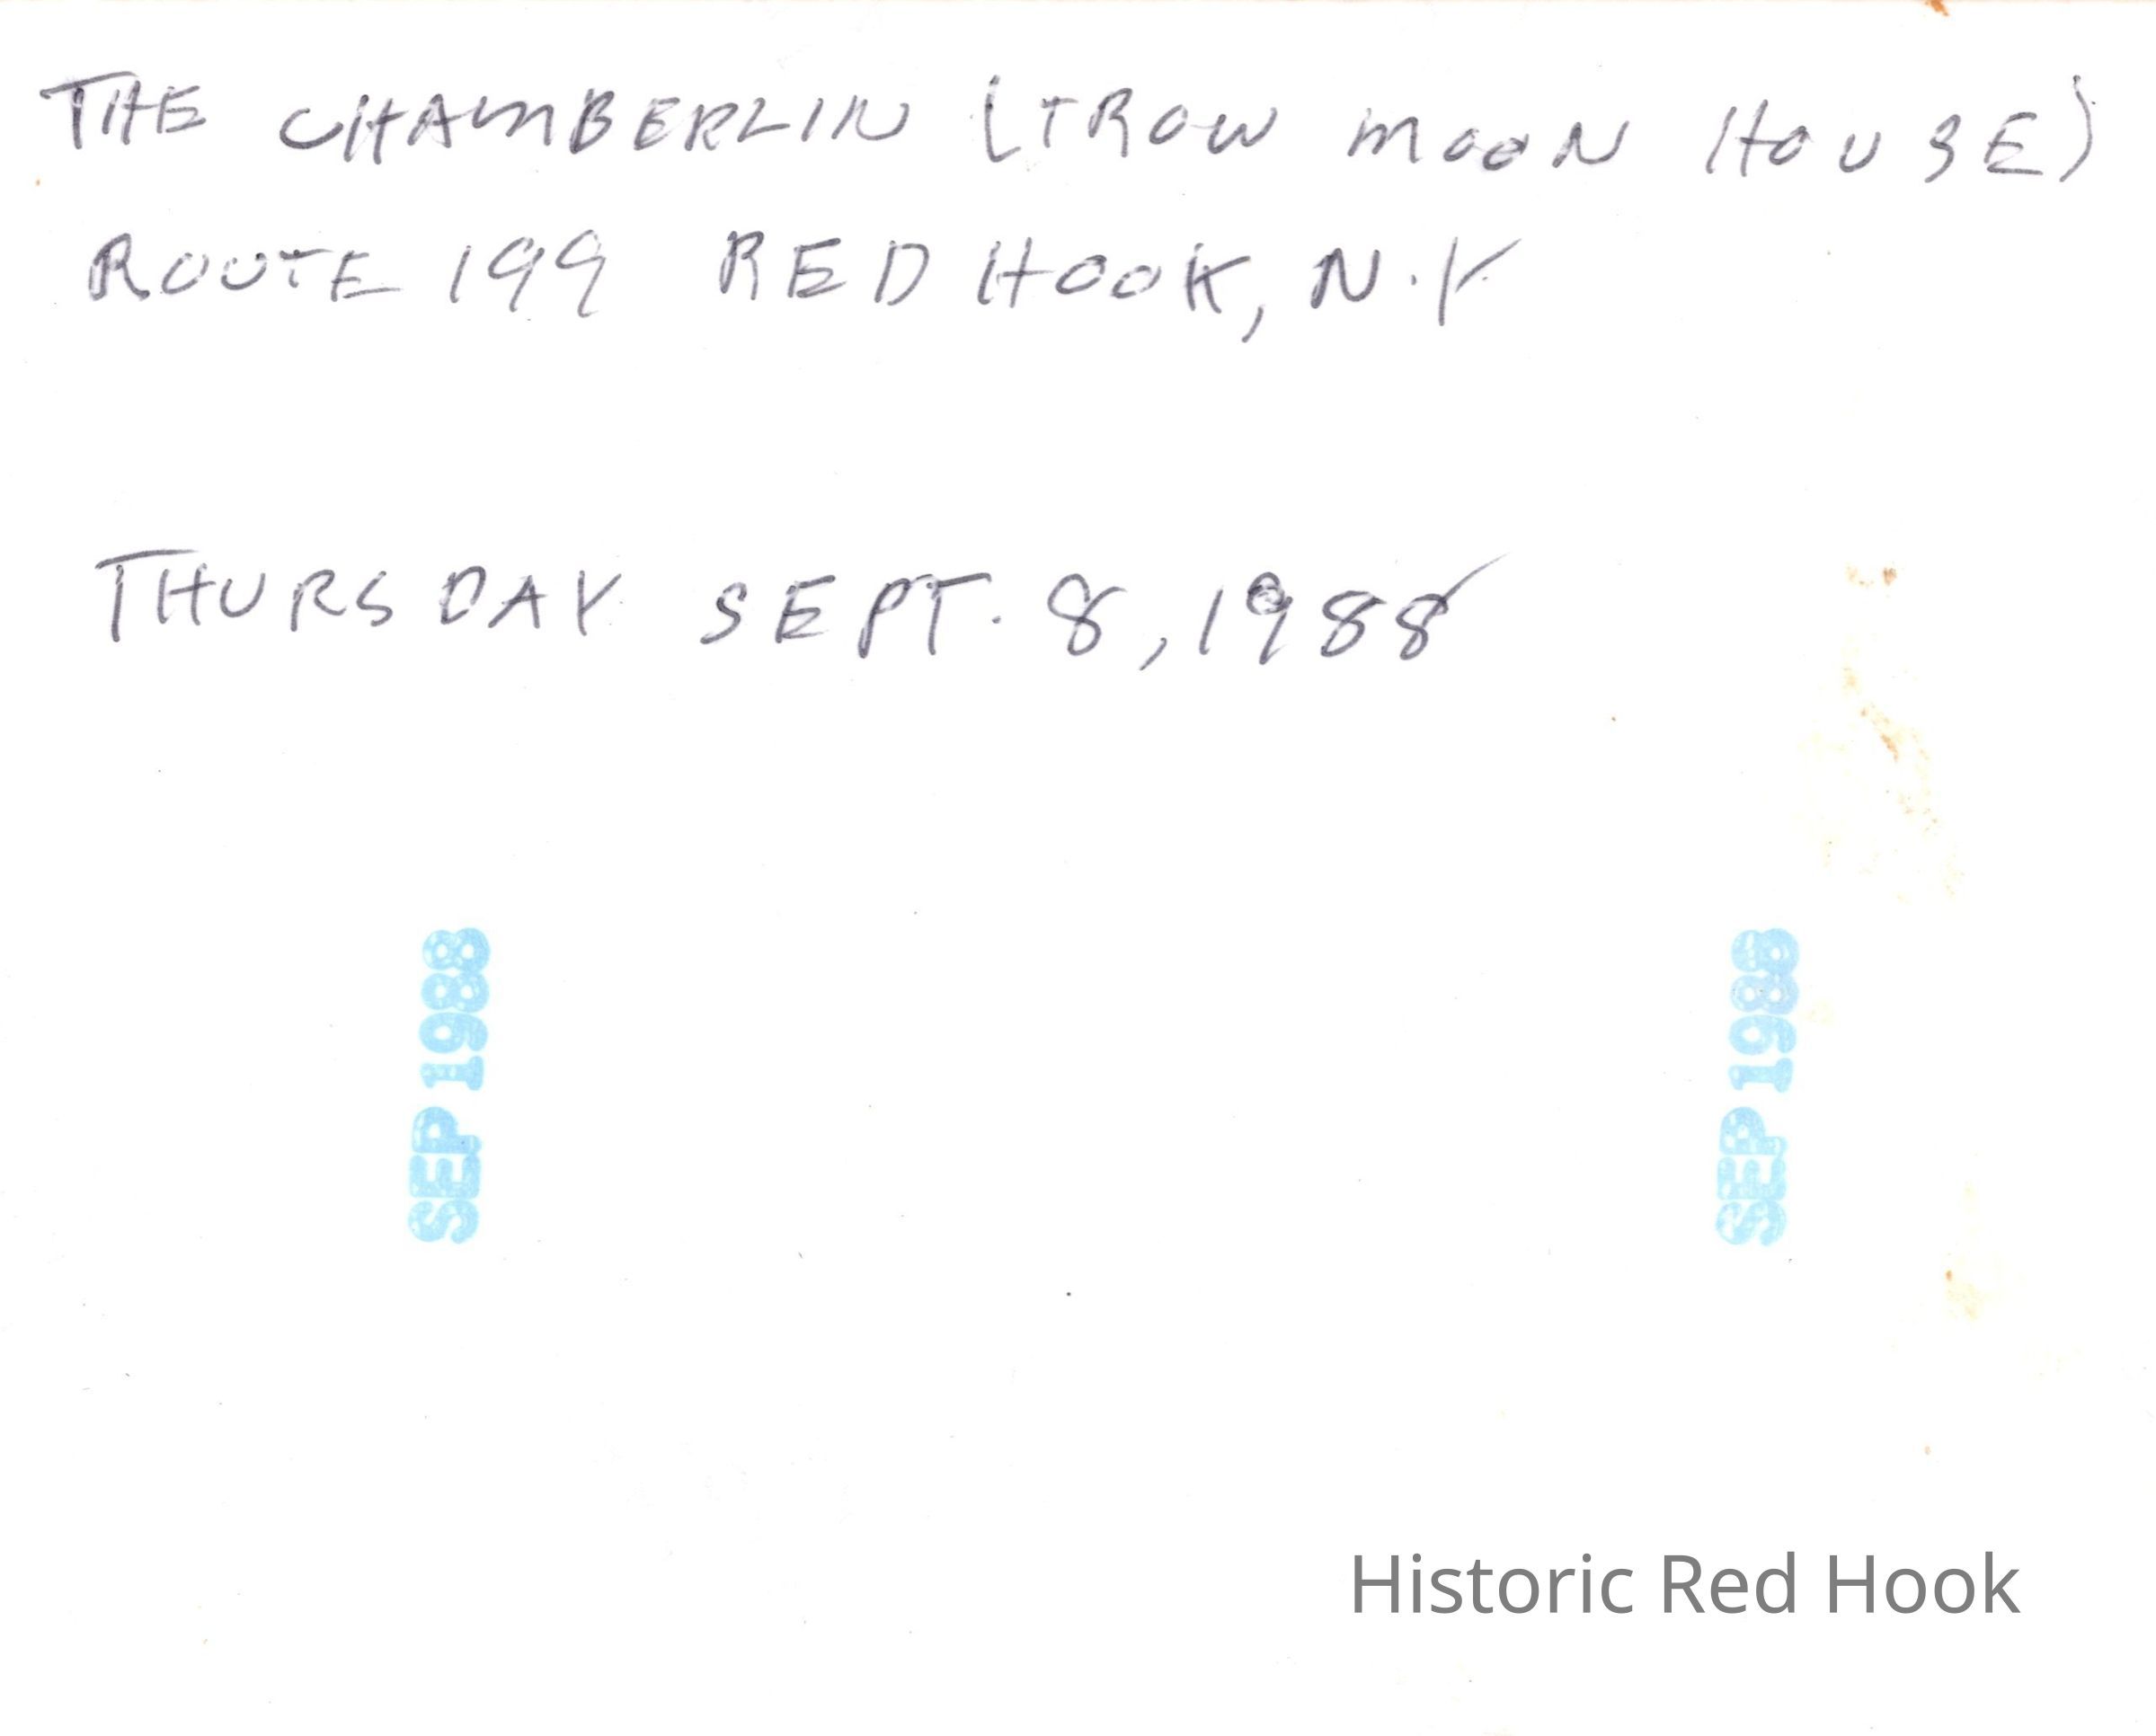 THE CHAMBERLIN (TROW MOON HOUSE)
ROUTE 199 RED HOOK, N.Y
THURSDAY SEPT. 8, 1988
SEP 1988
SEP 1988
Historic Red Hook